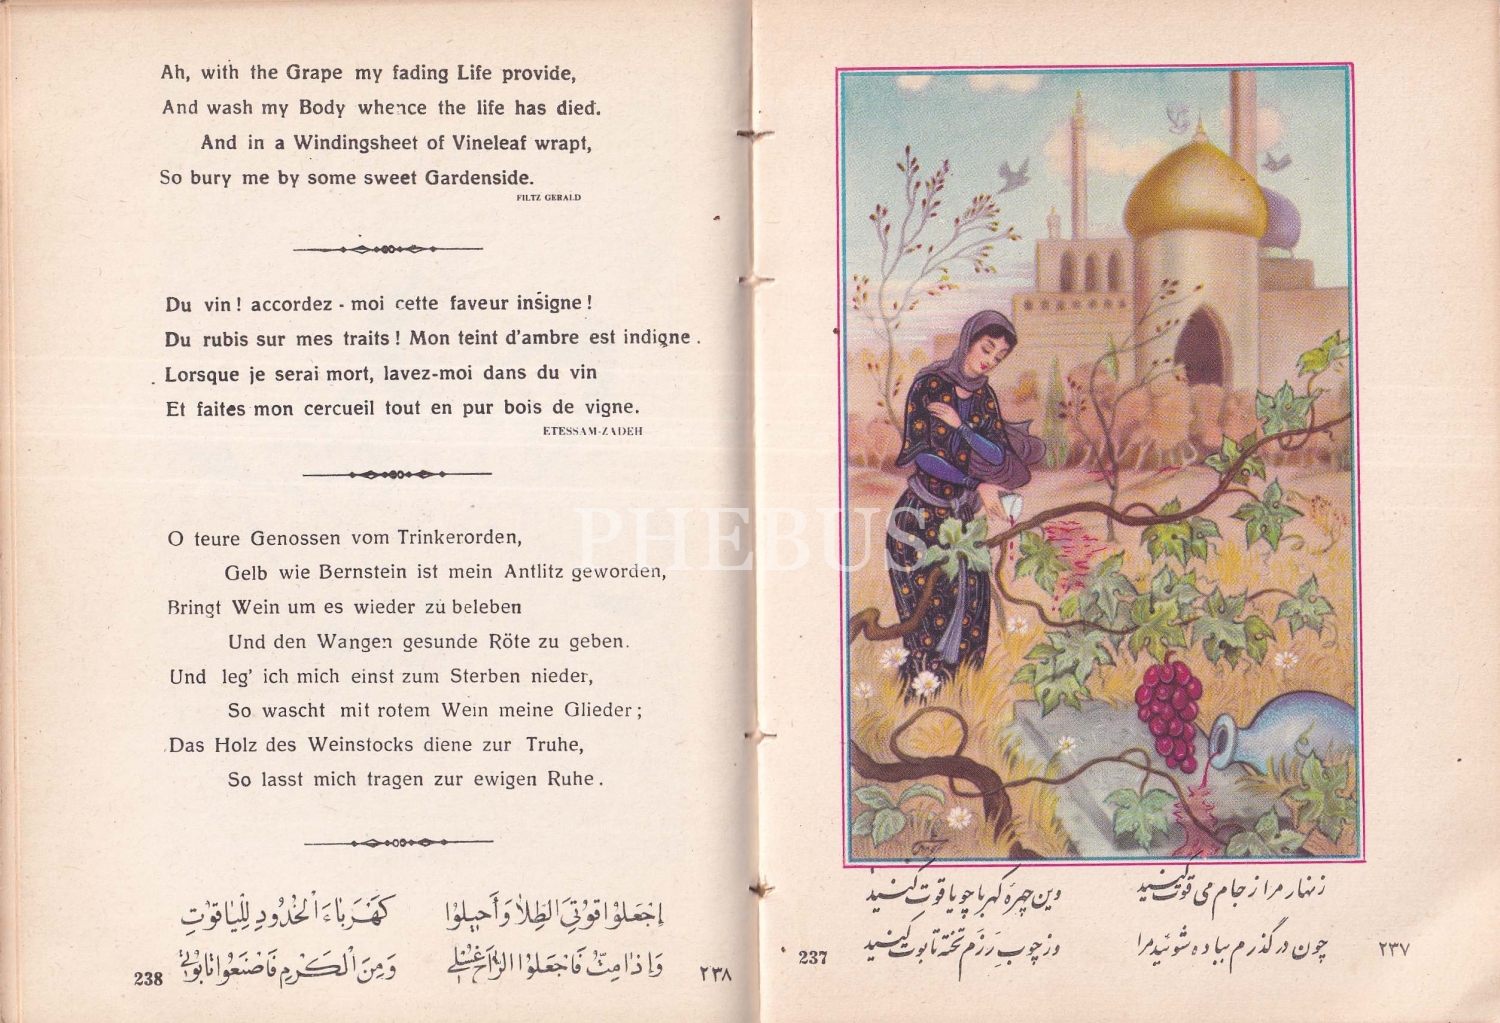 Ah, with the Grape my fading Life provide,
And wash my Body whence the life has died.
And in a Windingsheet of Vineleaf wrapt,
So bury me by some sweet Gardenside.
FILTZ GERALD
Du vin ! accordez - moi cette faveur insigne !
Du rubis sur mes traits ! Mon teint d'ambre est indigne .
Lorsque je serai mort, lavez-moi dans du vin
Et faites mon cercueil tout en pur bois de vigne.
ETESSAM-ZADEH
O teure Genossen vom Trinkerorden,
Gelb wie Bernstein ist mein Antlitz geworden,
Bringt Wein um es wieder zu beleben
Und den Wangen gesunde Röte zu geben.
Und leg' ich mich einst zum Sterben nieder,
So wascht mit rotem Wein meine Glieder ;
Das Holz des Weinstocks diene zur Truhe,
So lasst mich tragen zur ewigen Ruhe .
إجْعَلُوْا قُوْتِيَ الطِّلاٰ وَأَحِيلُوْا كَهْرَبَاءَ الْخُدُودِ لِلْيَاقُوْتِ
وَإِذَا مِتُّ فَاجْعَلُوْا الرَّاحَ غُسْلِي وَمِنَ الْكَرْمِ فَاصْنَعُوا تَابُوْتِي
238 ٢٣٨
PHEBUS
زنهار مرا ز جام می قوت کنید وین چهرهٔ کهربا چو یاقوت کنید
چون درگذرم بباده شوئید مرا وز چوب رزم تختهٔ تابوت کنید
237 ٢٣٧